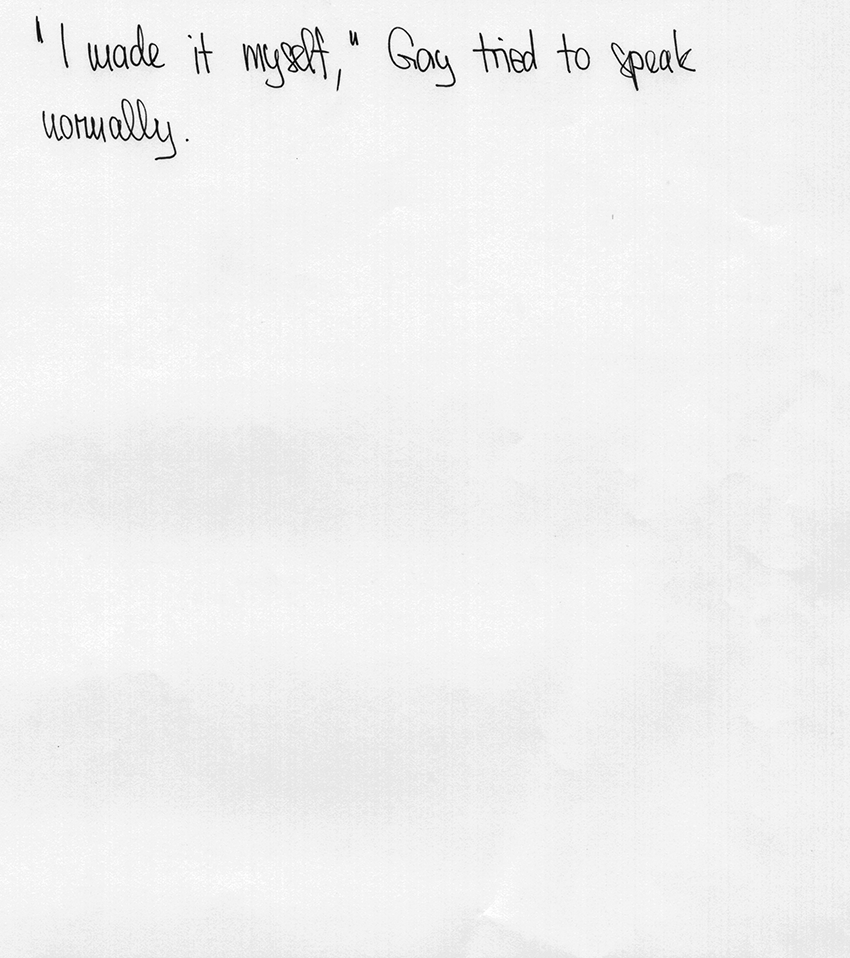 "I made it myself," Gay tried to speak
normally.